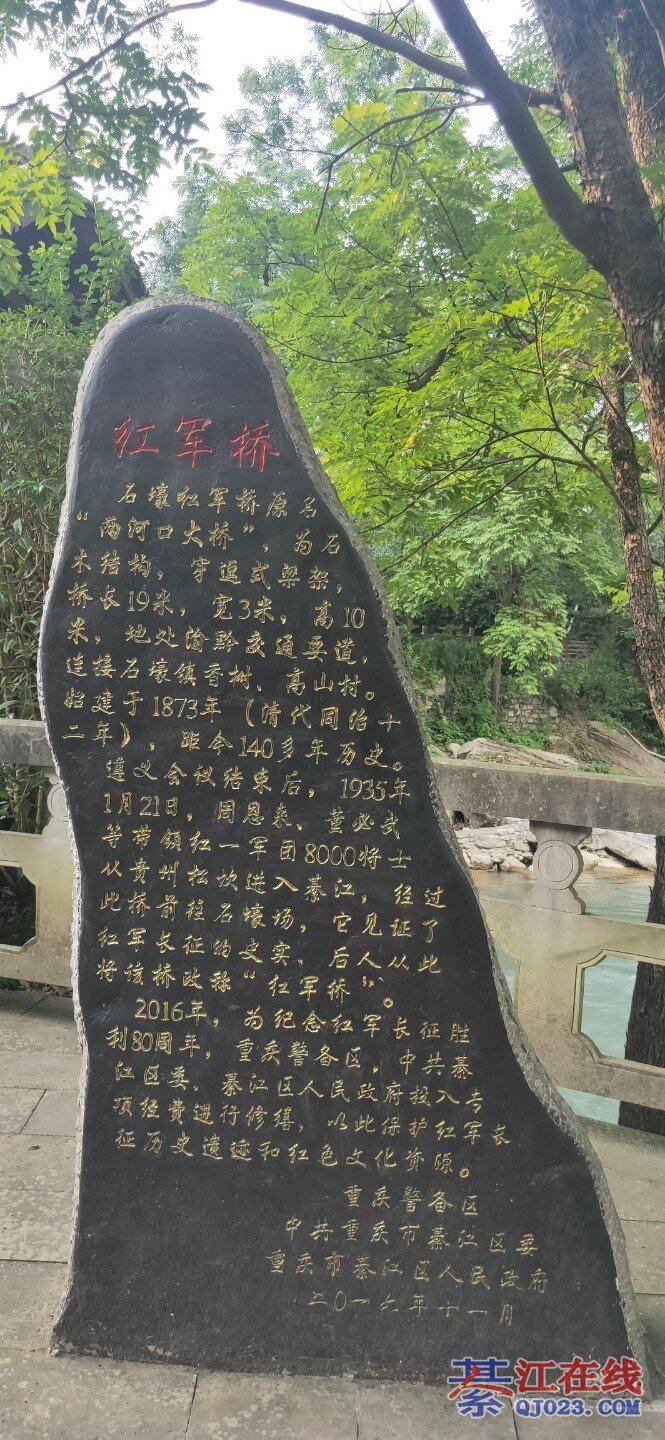 红军桥
石壕红军桥原名
“两河口大桥”，为石
木结构，穿逗式梁架，
桥长19米，宽3米，高10
米，地处渝黔交通要道，
连接石壕镇香树、高山村。
始建于1873年（清代同治十
二年），距今140多年历史。
遵义会议结束后，1935年
1月21日，周恩来、董必武
等带领红一军团8000将士
从贵州松坎进入綦江，经过
此桥前往石壕场，它见证了
红军长征的史实，后人从此
将该桥改称“红军桥”。
2016年，为纪念红军长征胜
利80周年，重庆警备区，中共綦
江区委、綦江区人民政府投入专
项经费进行修缮，以此保护红军长
征历史遗迹和红色文化资源。
重庆警备区
中共重庆市綦江区委
重庆市綦江区人民政府
二〇一六年十一月
綦江在线
QJ023.COM